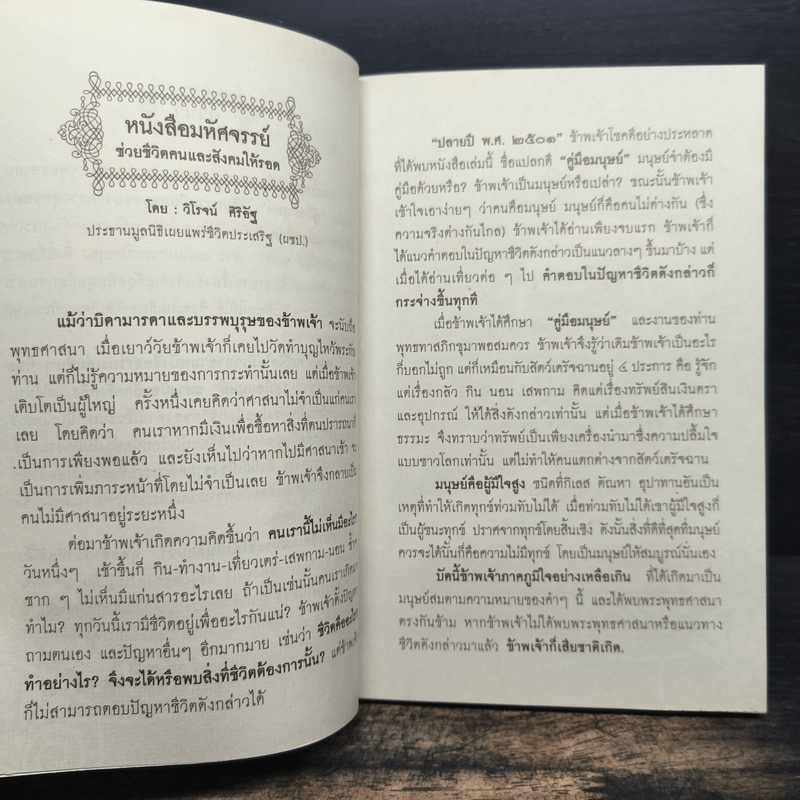 หนังสือมหัศจรรย์
ช่วยชีวิตคนและสังคมให้รอด
โดย : วิโรจน์ ศิริอัฐ
ประธานมูลนิธิเผยแพร่ชีวิตประเสริฐ (ผชป.)
แม้ว่าบิดามารดาและบรรพบุรุษของข้าพเจ้า จะนับถือ
พุทธศาสนา เมื่อเยาว์วัยข้าพเจ้าก็เคยไปวัดทำบุญไหว้พระกับ
ท่าน แต่ก็ไม่รู้ความหมายของการกระทำนั้นเลย แต่เมื่อข้าพเจ้า
เติบโตเป็นผู้ใหญ่ ครั้งหนึ่งเคยคิดว่าศาสนาไม่จำเป็นแก่คนเรา
เลย โดยคิดว่า คนเราหากมีเงินเพื่อซื้อหาสิ่งที่ตนปรารถนาก็
เป็นการเพียงพอแล้ว และยังเห็นไปว่าหากไปมีศาสนาเข้า จะ
เป็นการเพิ่มภาระหน้าที่โดยไม่จำเป็นเลย ข้าพเจ้าจึงกลายเป็น
คนไม่มีศาสนาอยู่ระยะหนึ่ง
ต่อมาข้าพเจ้าเกิดความคิดขึ้นว่า คนเรานี้ไม่เห็นมีอะไร
วันหนึ่งๆ เช้าขึ้นก็ กิน-ทำงาน-เที่ยวเตร่-เสพกาม-นอน ซ้ำ
ซาก ๆ ไม่เห็นมีแก่นสารอะไรเลย ถ้าเป็นเช่นนั้นคนเราเกิดมา
ทำไม? ทุกวันนี้เรามีชีวิตอยู่เพื่ออะไรกันแน่? ข้าพเจ้าตั้งปัญหา
ถามตนเอง และปัญหาอื่นๆ อีกมากมาย เช่นว่า ชีวิตคืออะไร
ทำอย่างไร? จึงจะได้หรือพบสิ่งที่ชีวิตต้องการนั้น? แต่ข้าพเจ้า
ก็ไม่สามารถตอบปัญหาชีวิตดังกล่าวได้
“ปลายปี พ.ศ. ๒๕๐๑” ข้าพเจ้าโชคดีอย่างประหลาด
ที่ได้พบหนังสือเล่มนี้ ชื่อแปลกดี “คู่มือมนุษย์” มนุษย์จำต้องมี
คู่มือด้วยหรือ? ข้าพเจ้าเป็นมนุษย์หรือเปล่า? ขณะนั้นข้าพเจ้า
เข้าใจเอาง่ายๆ ว่าคนคือมนุษย์ มนุษย์ก็คือคนไม่ต่างกัน (ซึ่ง
ความจริงต่างกันไกล) ข้าพเจ้าได้อ่านเพียงจบแรก ข้าพเจ้าก็
ได้แนวคำตอบในปัญหาชีวิตดังกล่าวเป็นแนวลางๆ ขึ้นมาบ้าง แต่
เมื่อได้อ่านเที่ยวต่อ ๆ ไป คำตอบในปัญหาชีวิตดังกล่าวก็
กระจ่างขึ้นทุกที
เมื่อข้าพเจ้าได้ศึกษา “คู่มือมนุษย์” และงานของท่าน
พุทธทาสภิกขุมาพอสมควร ข้าพเจ้าจึงรู้ว่าเดิมข้าพเจ้าเป็นอะไร
ก็บอกไม่ถูก แต่ก็เหมือนกับสัตว์เดรัจฉานอยู่ ๔ ประการ คือ รู้จัก
แต่เรื่องกลัว กิน นอน เสพกาม คิดแต่เรื่องทรัพย์สินเงินตรา
และอุปกรณ์ ให้ได้สิ่งดังกล่าวเท่านั้น แต่เมื่อข้าพเจ้าได้ศึกษา
ธรรมะ จึงทราบว่าทรัพย์เป็นเพียงเครื่องนำมาซึ่งความปลื้มใจ
แบบชาวโลกเท่านั้น แต่ไม่ทำให้คนแตกต่างจากสัตว์เดรัจฉาน
มนุษย์คือผู้มีใจสูง ชนิดที่กิเลส ตัณหา อุปาทานอันเป็น
เหตุที่ทำให้เกิดทุกข์ท่วมทับไม่ได้ เมื่อท่วมทับไม่ได้เขาผู้มีใจสูงก็
เป็นผู้ชนะทุกข์ ปราศจากทุกข์โดยสิ้นเชิง ดังนั้นสิ่งที่ดีที่สุดที่มนุษย์
ควรจะได้นั้นก็คือความไม่มีทุกข์ โดยเป็นมนุษย์ให้สมบูรณ์นั่นเอง
บัดนี้ข้าพเจ้าภาคภูมิใจอย่างเหลือเกิน ที่ได้เกิดมาเป็น
มนุษย์สมตามความหมายของคำๆ นี้ และได้พบพระพุทธศาสนา
ตรงกันข้าม หากข้าพเจ้าไม่ได้พบพระพุทธศาสนาหรือแนวทาง
ชีวิตดังกล่าวมาแล้ว ข้าพเจ้าก็เสียชาติเกิด.